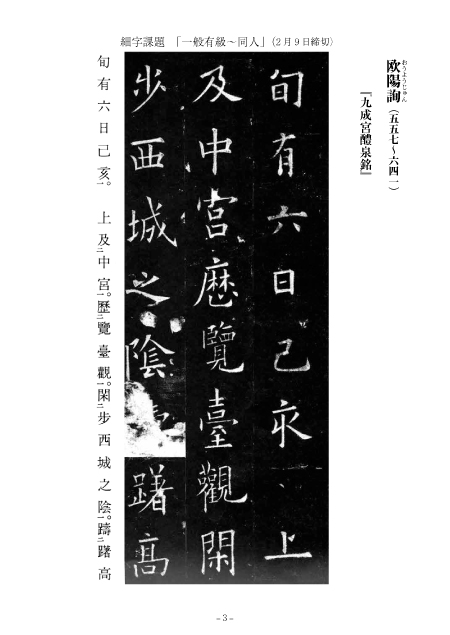 細字課題 「一般有級～同人」(2月9日締切)
欧陽詢(五五七～六四一)
おうようじゅん
『九成宮醴泉銘』
旬有六日己亥上
及中宮歴覽臺觀閑
歩西城之陰躊躇高
旬有六日己亥一。 上及二中宮一。歴二覽臺觀一。閑二歩西城之陰一。躊二躇高
-3-